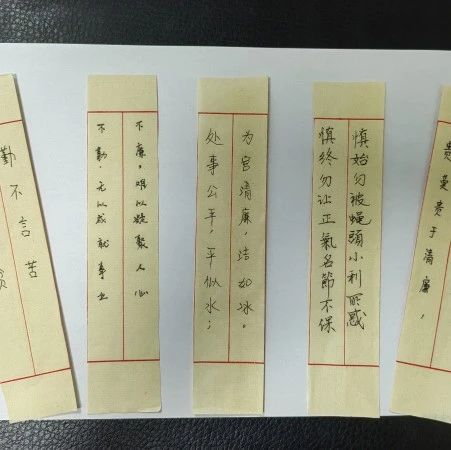 贵莫贵于清廉，
慎始勿被蠅頭小利所惑
慎終勿让正氣名節不保
为官清廉，洁如冰。
处事公平，平似水；
不廉，难以凝聚人心
不勤无以成就事业
勤不言苦